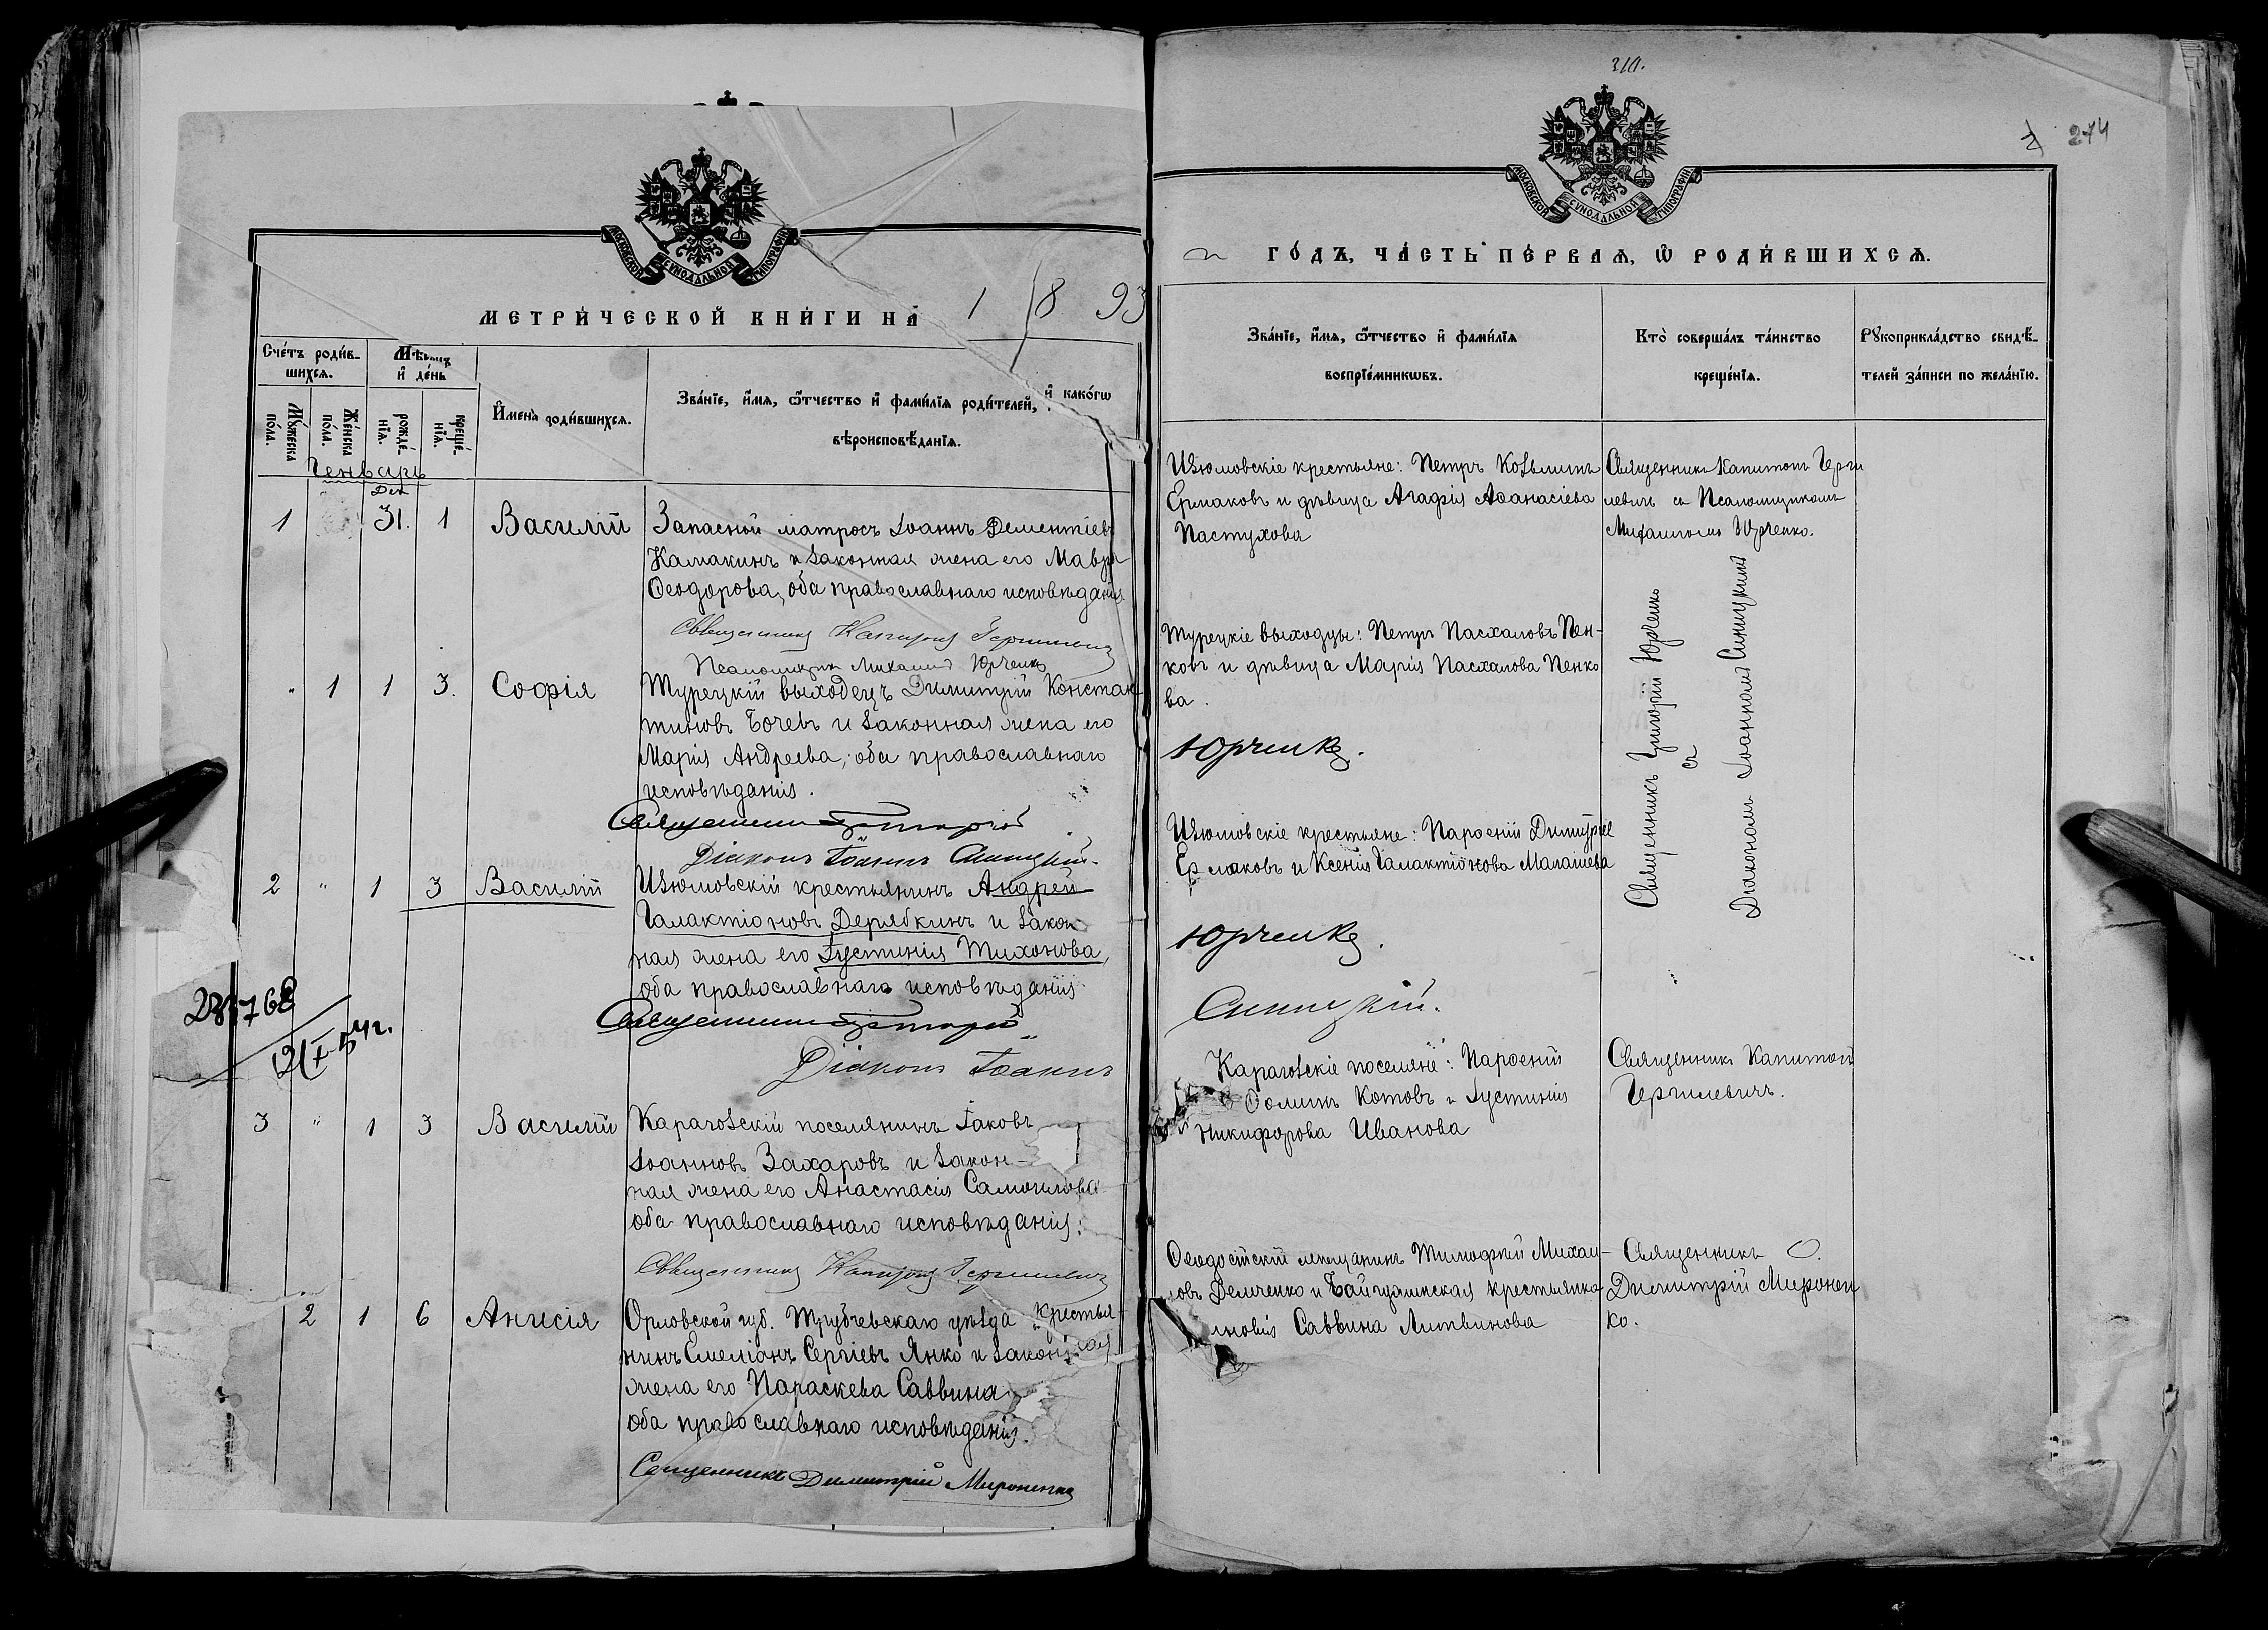 МОСКОВСКОЙ СѴНОДАЛЬНОЙ ТИПОГРАФІИ
МЕТРИ́ЧЕСКОЙ КНИ́ГИ НА̀ 1893
Сче́тъ роди́в-
шихсѧ.
Мѣсѧцъ
и҆ де́нь
И҆мена̀ родившихсѧ.
Зва́нїе, и҆́мѧ, ѻ҆́тчество и҆ фами́лїѧ роди́телей, и҆ како́гѡ
вѣроисповѣ́данїѧ.
Мꙋ́жеска
по́ла.
Же́нска
по́ла.
рожде́-
нїѧ.
креще́-
нїѧ.
Генварь
Дек
1 31. 1 Василій
Запасной матросъ Іоаннъ Дементіевъ
Камакинъ и законная жена его Мавра
Ѳеодорова, оба православнаго исповѣданія.
Священникъ Капитонъ Гергилевичъ
Псаломщикъ Михаилъ Юрченко
" 1 1 3. Софія
Турецкій выходецъ Димитрій Констан-
тиновъ Бочевъ и законная жена его
Марія Андреева, оба православнаго
исповѣданія.
Священникъ Григорій
Діаконъ Іоаннъ Синицкій.
2 " 1 3 Василій
Изюмовскій крестьянинъ Андрей
Галактіоновъ Дерябкинъ и закон
ная жена его Іустинія Тихонова,
оба православнаго исповѣданія
Священникъ Григорій
Діаконъ Іоаннъ
3 " 1 3 Василій
Карагозскій поселянинъ Іаковъ
Іоанновъ Захаровъ и закон-
ная жена его Анастасія Самоилова
оба православнаго исповѣданія:
Священникъ Капитонъ Гергилевичъ
2 1 6 Анисія
Орловской губ. Трубчевскаго уѣзда крестья-
нинъ Емеліанъ Сергіевъ Янко и законная
жена его Параскева Саввина
оба православнаго исповѣданія.
Священникъ Димитрій Мироненко
310.
274
МОСКОВСКОЙ СѴНОДАЛЬНОЙ ТИПОГРАФІИ
ГО́ДЪ, ЧА́СТЬ ПЕ́РВАѦ, Ѡ҆ РОДИ́ВШИХСѦ.
Зва́нїе, и҆́мѧ, ѻ҆́тчество и҆ фами́лїѧ
воспрїе́мникѡвъ.
Кто̀ соверша́лъ та́инство
креще́нїѧ.
Рꙋкоприкла́дство свидѣ́-
телей за́писи по жела́нїю.
Изюмовскіе крестьяне: Петръ Козьминъ
Ермаковъ и дѣвица Агафія Аѳанасіева
Пастухова
Священникъ Капитонъ Герги
левичъ съ Псаломщикомъ
Михаиломъ Юрченко.
Турецкіе выходцы: Петръ Пасхаловъ Пен-
ковъ и дѣвица Марія Пасхалова Пенко
ва.
Юрченко.
Священникъ Григорій Юрченко
съ
Діакономъ Іоанномъ Синицкимъ
Изюмовскіе крестьяне: Парѳеній Димитріев
Ермаковъ и Ксенія Галактіонова Малашева
Юрченко.
Синицкій.
Карагозскіе поселяне: Парѳеній
Ѳоминъ Котовъ и Іустинія
Никифорова Иванова
Священникъ Капитонъ
Гергилевичъ.
Ѳеодосійскій мещанинъ Тимофей Михаи-
ловъ Демченко и Байгузинская крестьянка
Саввина Литвинова
Священникъ
Димитрій Миронен
ко.